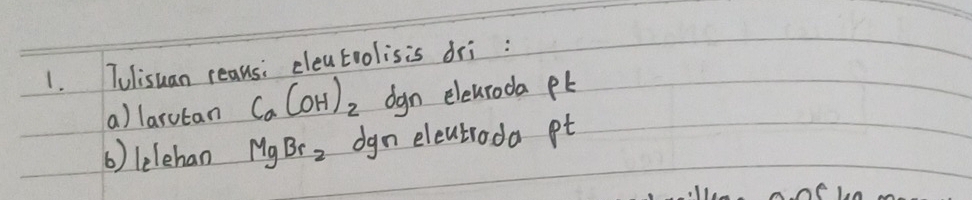 1. Tuliskan reaksi elektrolisis dri :
a) larutan Ca(OH)₂ dgn elektroda pt
b) lelehan MgBr₂ dgn elektroda pt